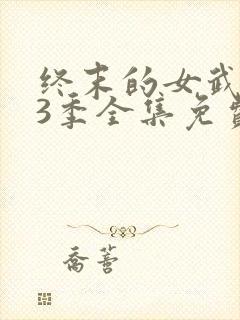 终末的女武
3季全集免费
乔蔷